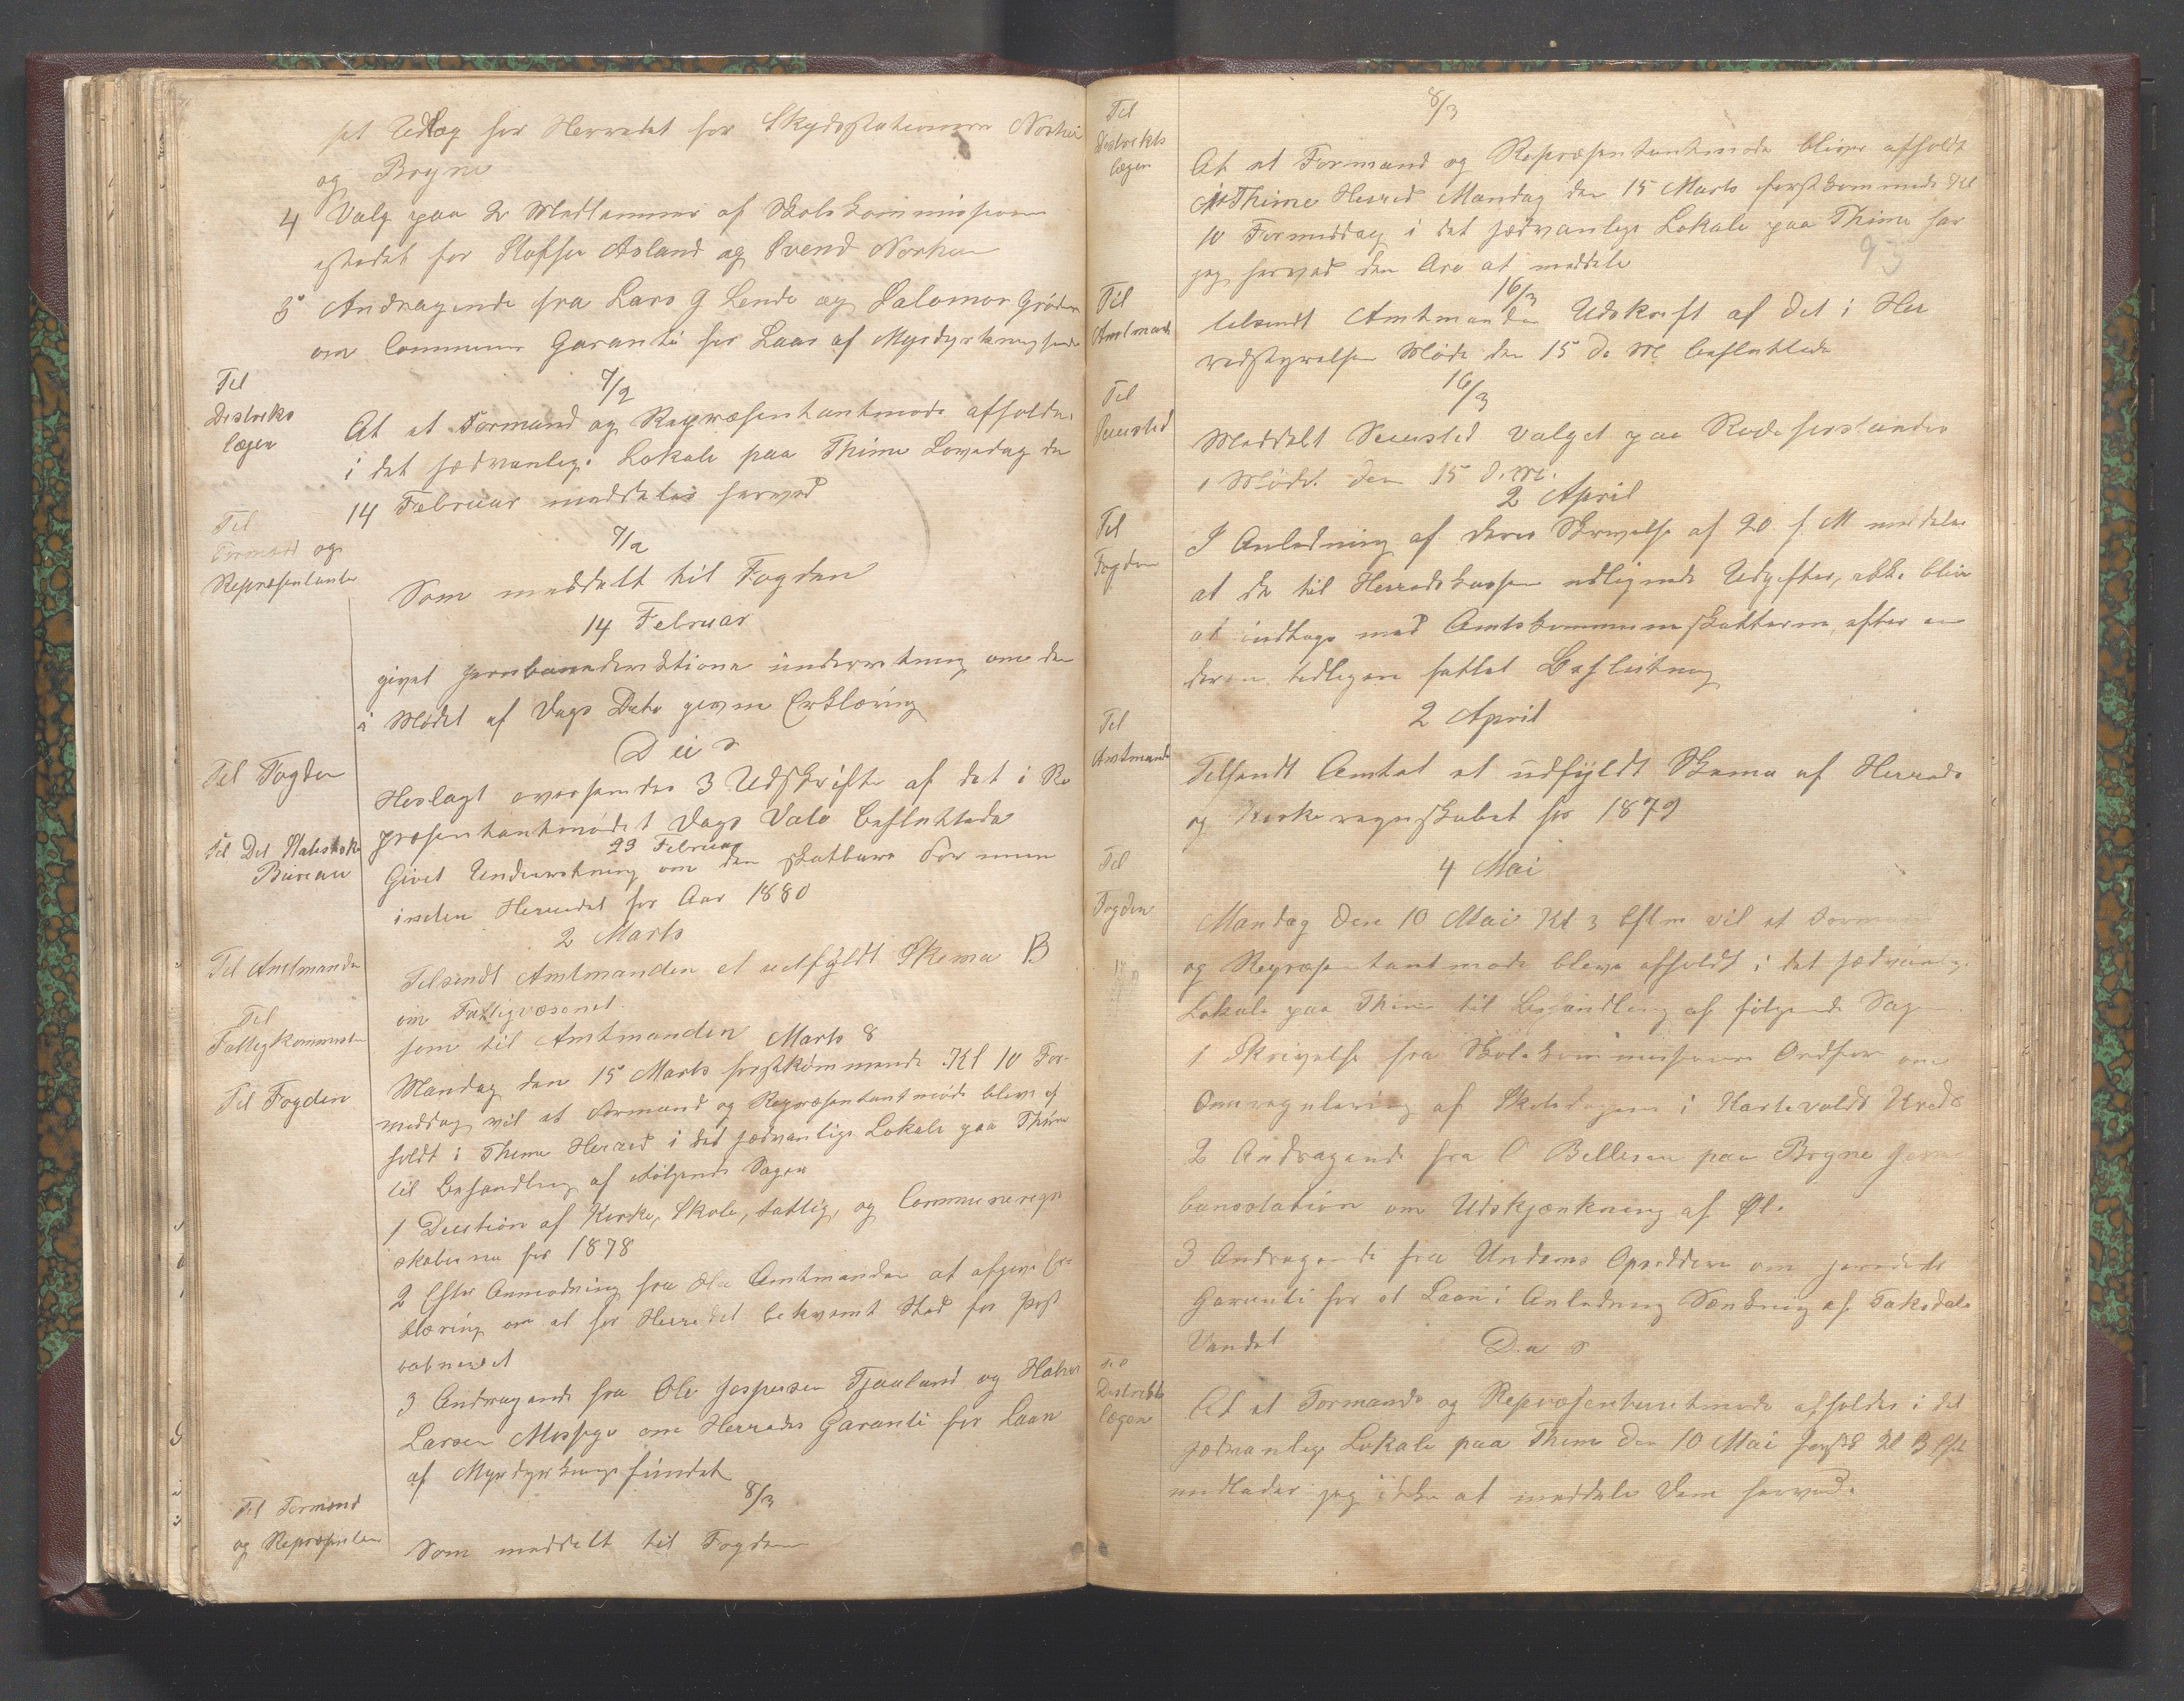 et Udlæg for Herredet for Skydsstationerne
og Bryne
4 Valg paa 2 Medlemmer af Skolekommissionen
istedet for Asland og Svend Norhei
5 Andragende fra Lars G Lende og Salomon Gröden
om Communens Garanti for Laan af Myrdyrkningsfondet
Til
Distrikts
lægen
7/2
At et Formand og Repræsentantmøde afholdes
i det sædvanlige Lokale paa Thime Løverdag den
14 Februar meddeles herved
Til
Formænd og
Repræsentanter
7/2
Som meddelt til Fogden
14 Februar
givet Jernbanedirektionen underretning om den
i Mødet af Dags Dato givne Erklæring
Til Fogden
Heslagt oversendes 3 Udskrifter af det i Re
præsentantmødet Dags Dato besluttede
Til Det Statistiske
Bureau
23 Februar
Givet Underretning om den skatbare Formue
inden Herredet for Aar 1880
2 Marts
Til Amtmanden
Tilsendt Amtmanden et udfyldt Skema B
om Fattigvæsenet.
Til
Fattigkommission
som til Amtmanden Marts 8
Til Fogden
Mandag den 15 Marts førstkommende Kl 10 For-
middag vil et Formand og Repræsentantmøde blive af
holdt i Thime Herred i det sædvanlige Lokale paa Thime
til Behandling af følgende Sager
1 Decition af Kirke, Skole, Fattig, og Communeregn
skaberne for 1878
2 Efter Anmodning fra Amtmanden at afgive Er-
klæring om et for Herredet bekvemt Sted for Post
aabneriet
3 Andragende fra Ole Jespersen Tjaaland og
Larsen Mossige om Herredets Garanti for Laan
af Myrdyrkningsfondet
Til Formænd
og Repræsentan
8/3
Som meddelt til Fogden
Til
Distrikts
lægen
8/3
At et Formand og Repræsentantmøde bliver afholdt
i Thime Herred Mandag den 15 Marts førstkommende Kl
10 Formiddag i det sædvanlige Lokale paa Thime har
93
jeg herved den Ære at meddele
Til
Amtmanden
16/3
tilsendt Amtmanden Udskrift af det i Her
redsstyrelsen Møde den 15 d. M. besluttede
Til
16/3
Meddelt valget paa Rodeforstander
i Mødet den 15 d. M.
Til
Fogden
2 April
I Anledning af deres Skrivelse af 20 f. M meddeles
at de til Herredskassen udlignede Udgifter, ikke bliver
at indtage med Amtskommuneskatterne, efter en
derom tidligere fattet Beslutning
Til
Amtmanden
2 April
Tilsendt Amtet et udfyldt Skema af Herreds
og Kirkeregnskabet for 1879
Til
Fogden
4 Mai
Mandag den 10 Mai Kl 3 Eftm vil et Formand
og Repræsentantmøde blive afholdt i det sædvanlig
Lokale paa Thime til Behandling af følgende Sag
1 Skrivelse fra Skolekommissionens Ordfører om
Omregulering af Skoledagene i Karlevolds Kreds
2 Andragende fra O Bellesen paa Bryne Jern
banestation om Udskjænkning af Øl.
3 Andragende fra Undems Opsiddere om Herredets
Garanti for et Laan i Anledning Sænkning af Taksdals
Vandet
Til
Distrikts
lægen
At et Formands og Repræsentantmøde afholdes i det
sædvanlige Lokale paa Thime den 10 Mai førstk Kl 3 Eft
undlader jeg ikke at meddele Dem herved.